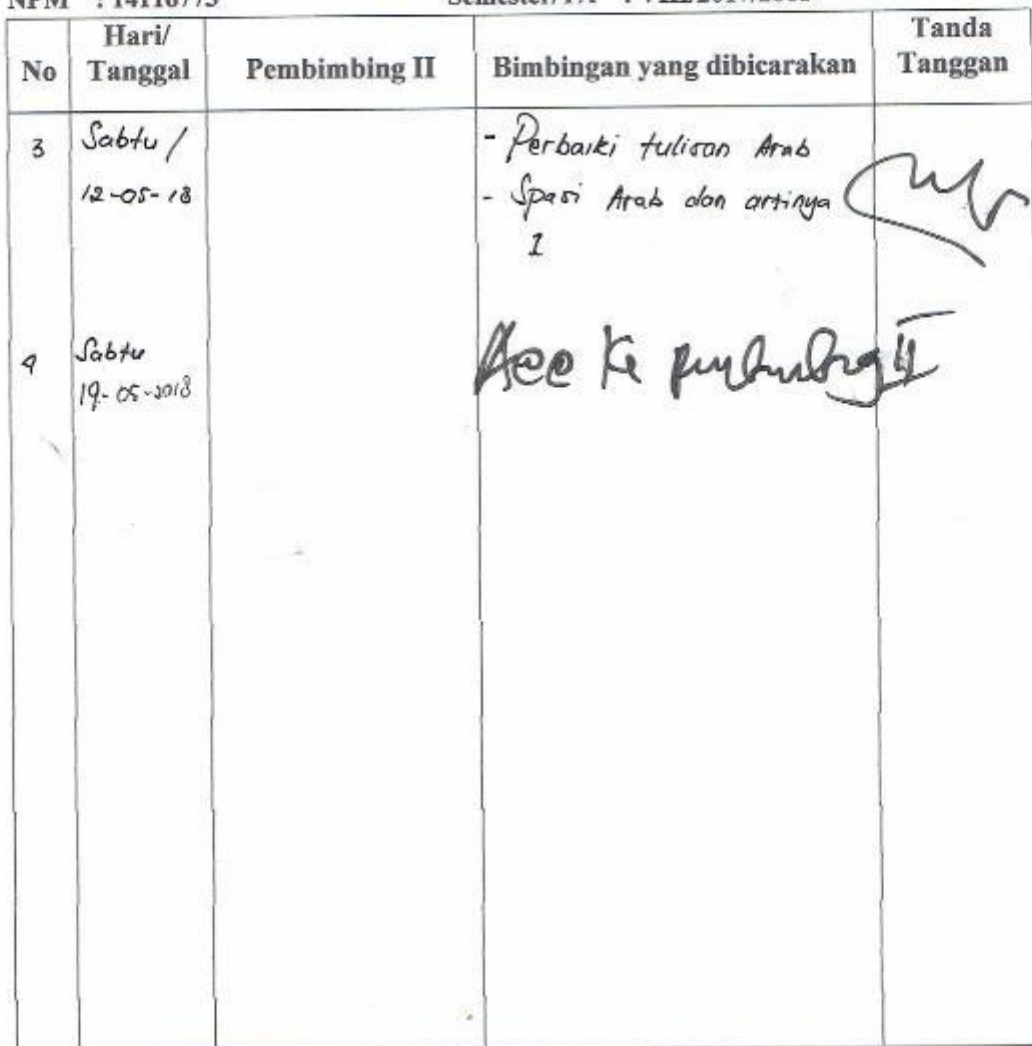 No
Hari/
Tanggal
Pembimbing II
Bimbingan yang dibicarakan
Tanda
Tanggan
3
Sabtu /
12-05-18
- Perbaiki tulisan Arab
- Spasi Arab dan artinya
1
4
Sabtu
19-05-2018
Acc Ke pembimbing II